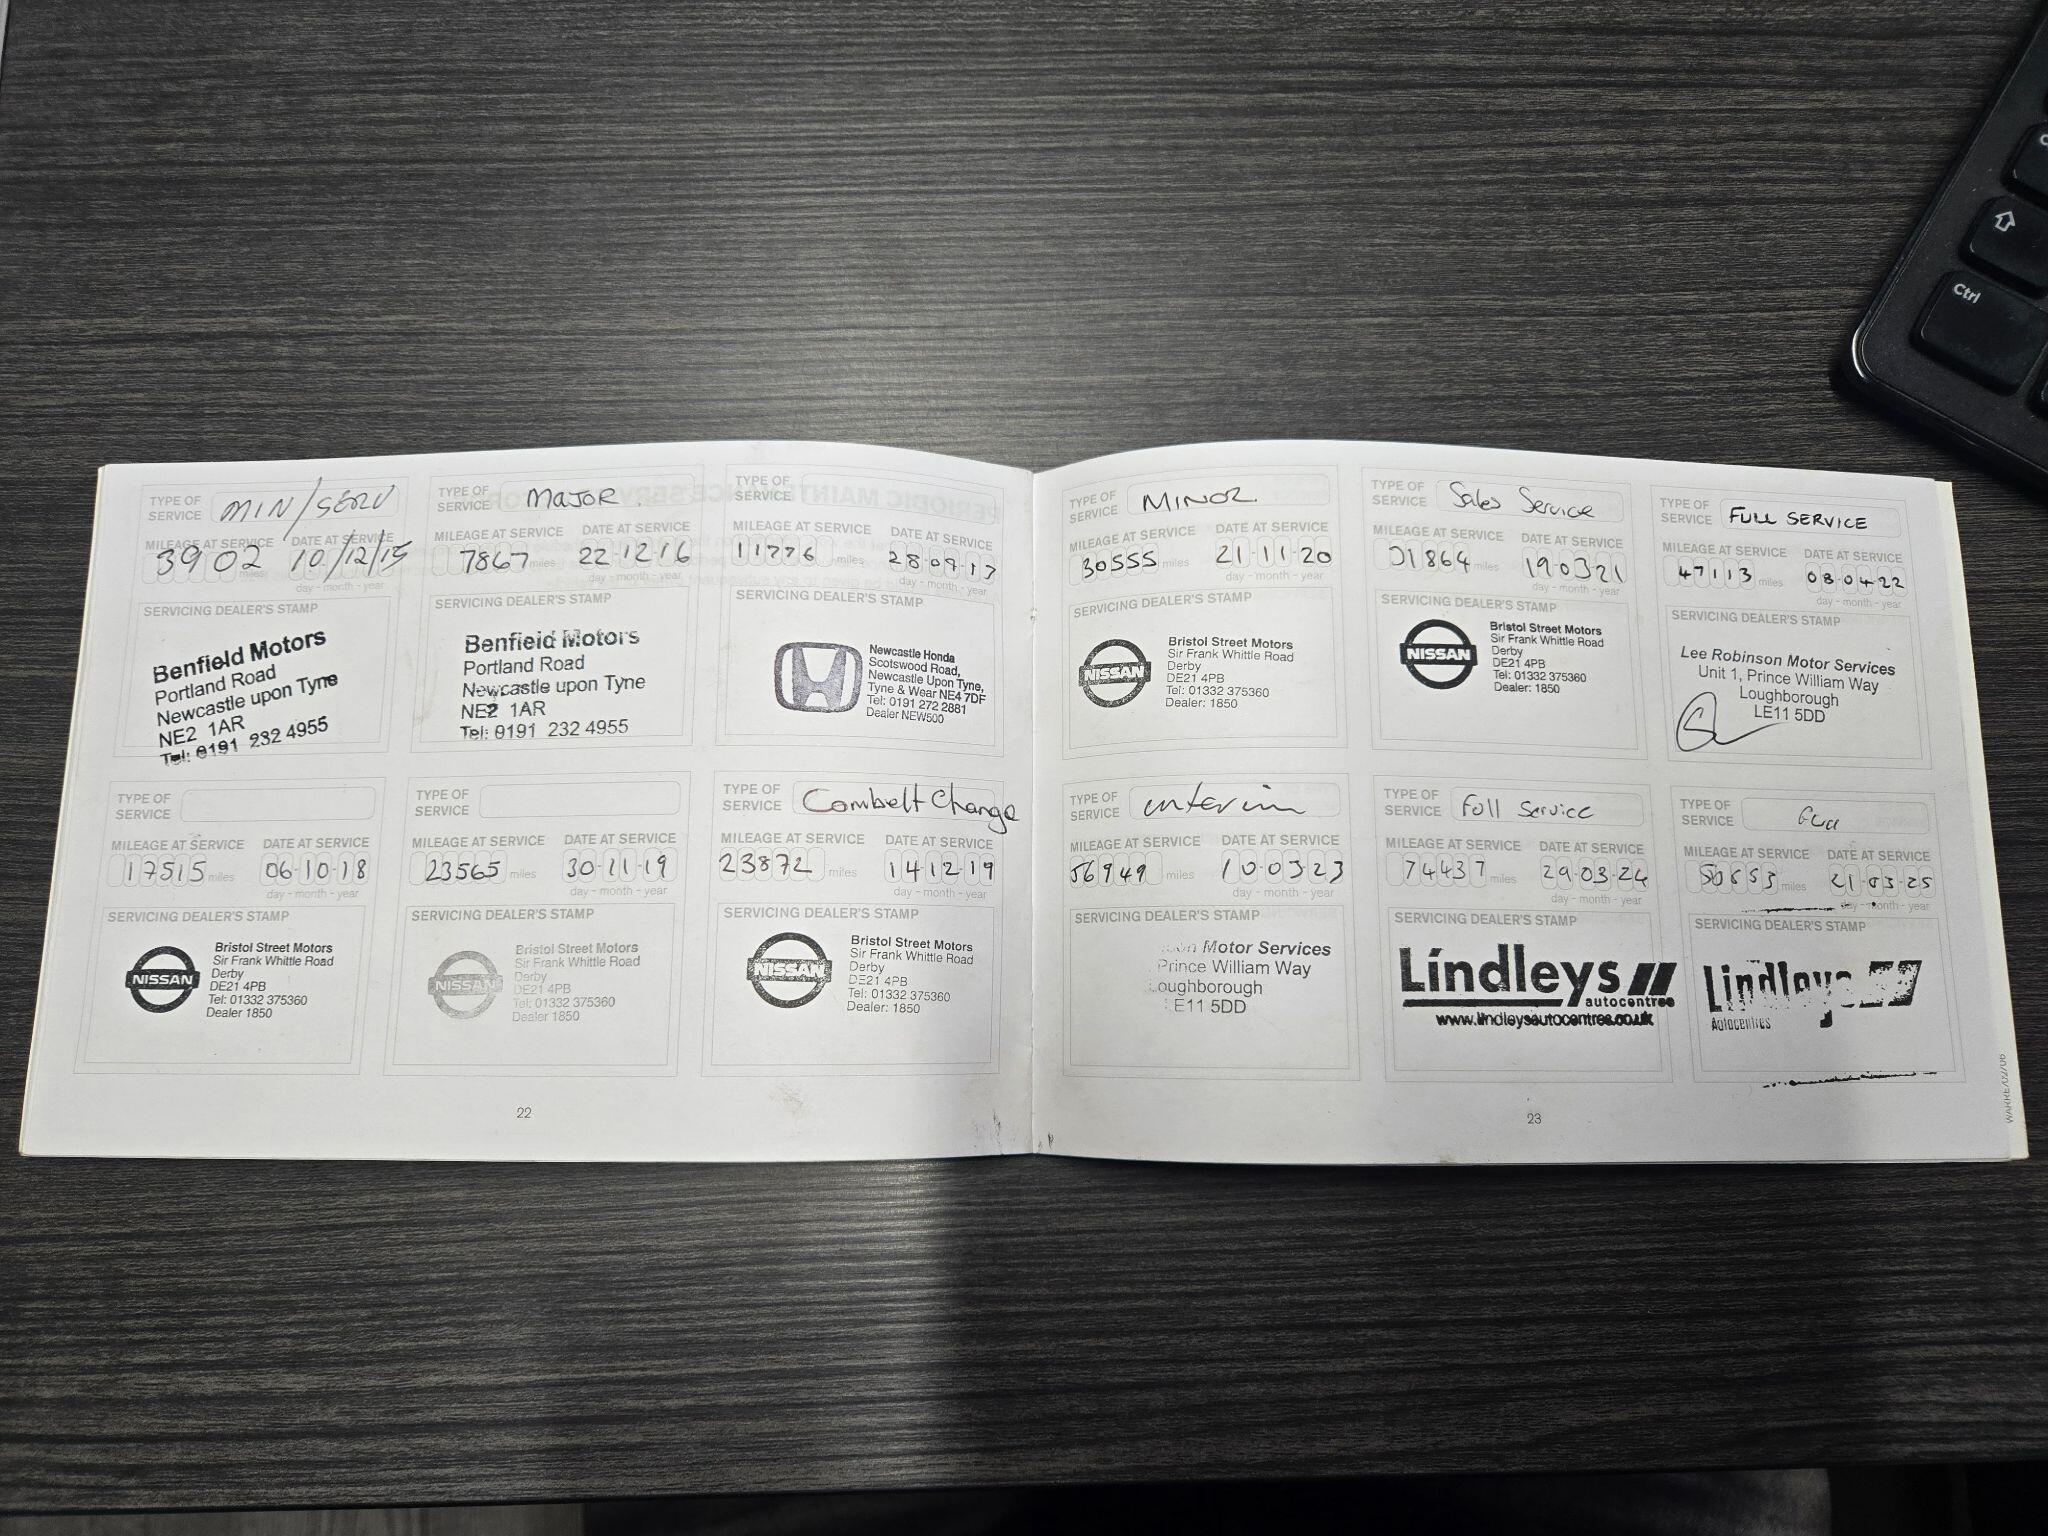 TYPE OF SERVICE MIN/SERV
MILEAGE AT SERVICE DATE AT SERVICE
3902 miles 10/12/15
day - month - year
SERVICING DEALER'S STAMP
Benfield Motors
Portland Road
Newcastle upon Tyne
NE2 1AR
Tel: 0191 232 4955
TYPE OF SERVICE MAJOR
MILEAGE AT SERVICE DATE AT SERVICE
7867 miles 22-12-16
day - month - year
SERVICING DEALER'S STAMP
Benfield Motors
Portland Road
Newcastle upon Tyne
NE2 1AR
Tel: 0191 232 4955
TYPE OF SERVICE
MILEAGE AT SERVICE DATE AT SERVICE
miles
day - month - year
SERVICING DEALER'S STAMP
Newcastle Honda
Scotswood Road,
Newcastle Upon Tyne,
Tyne & Wear NE4 7DF
Tel: 0191 272 2881
Dealer NEW500
TYPE OF SERVICE
MILEAGE AT SERVICE DATE AT SERVICE
17515 miles 06-10-18
day - month - year
SERVICING DEALER'S STAMP
NISSAN
Bristol Street Motors
Sir Frank Whittle Road
Derby
DE21 4PB
Tel: 01332 375360
Dealer 1850
TYPE OF SERVICE
MILEAGE AT SERVICE DATE AT SERVICE
23565 miles 30-11-19
day - month - year
SERVICING DEALER'S STAMP
NISSAN
Bristol Street Motors
Sir Frank Whittle Road
Derby
DE21 4PB
Tel: 01332 375360
Dealer 1850
TYPE OF SERVICE Cambelt Change
MILEAGE AT SERVICE DATE AT SERVICE
23872 miles 14-12-19
day - month - year
SERVICING DEALER'S STAMP
NISSAN
Bristol Street Motors
Sir Frank Whittle Road
Derby
DE21 4PB
Tel: 01332 375360
Dealer: 1850
22
TYPE OF SERVICE MINOR
MILEAGE AT SERVICE DATE AT SERVICE
30555 miles 21-11-20
day - month - year
SERVICING DEALER'S STAMP
NISSAN
Bristol Street Motors
Sir Frank Whittle Road
Derby
DE21 4PB
Tel: 01332 375360
Dealer: 1850
TYPE OF SERVICE Sales Service
MILEAGE AT SERVICE DATE AT SERVICE
31864 miles 19-03-21
day - month - year
SERVICING DEALER'S STAMP
NISSAN
Bristol Street Motors
Sir Frank Whittle Road
Derby
DE21 4PB
Tel: 01332 375360
Dealer: 1850
TYPE OF SERVICE FULL SERVICE
MILEAGE AT SERVICE DATE AT SERVICE
47113 miles 08-04-22
day - month - year
SERVICING DEALER'S STAMP
Lee Robinson Motor Services
Unit 1, Prince William Way
Loughborough
LE11 5DD
TYPE OF SERVICE interim
MILEAGE AT SERVICE DATE AT SERVICE
56949 miles 10-03-23
day - month - year
SERVICING DEALER'S STAMP
Motor Services
Prince William Way
Loughborough
LE11 5DD
TYPE OF SERVICE Full Service
MILEAGE AT SERVICE DATE AT SERVICE
74437 miles 29-03-24
day - month - year
SERVICING DEALER'S STAMP
Lindleys
autocentres
www.lindleysautocentres.co.uk
TYPE OF SERVICE
MILEAGE AT SERVICE DATE AT SERVICE
miles 21-03-25
day - month - year
SERVICING DEALER'S STAMP
Lindleys
Autocentres
23
Ctrl